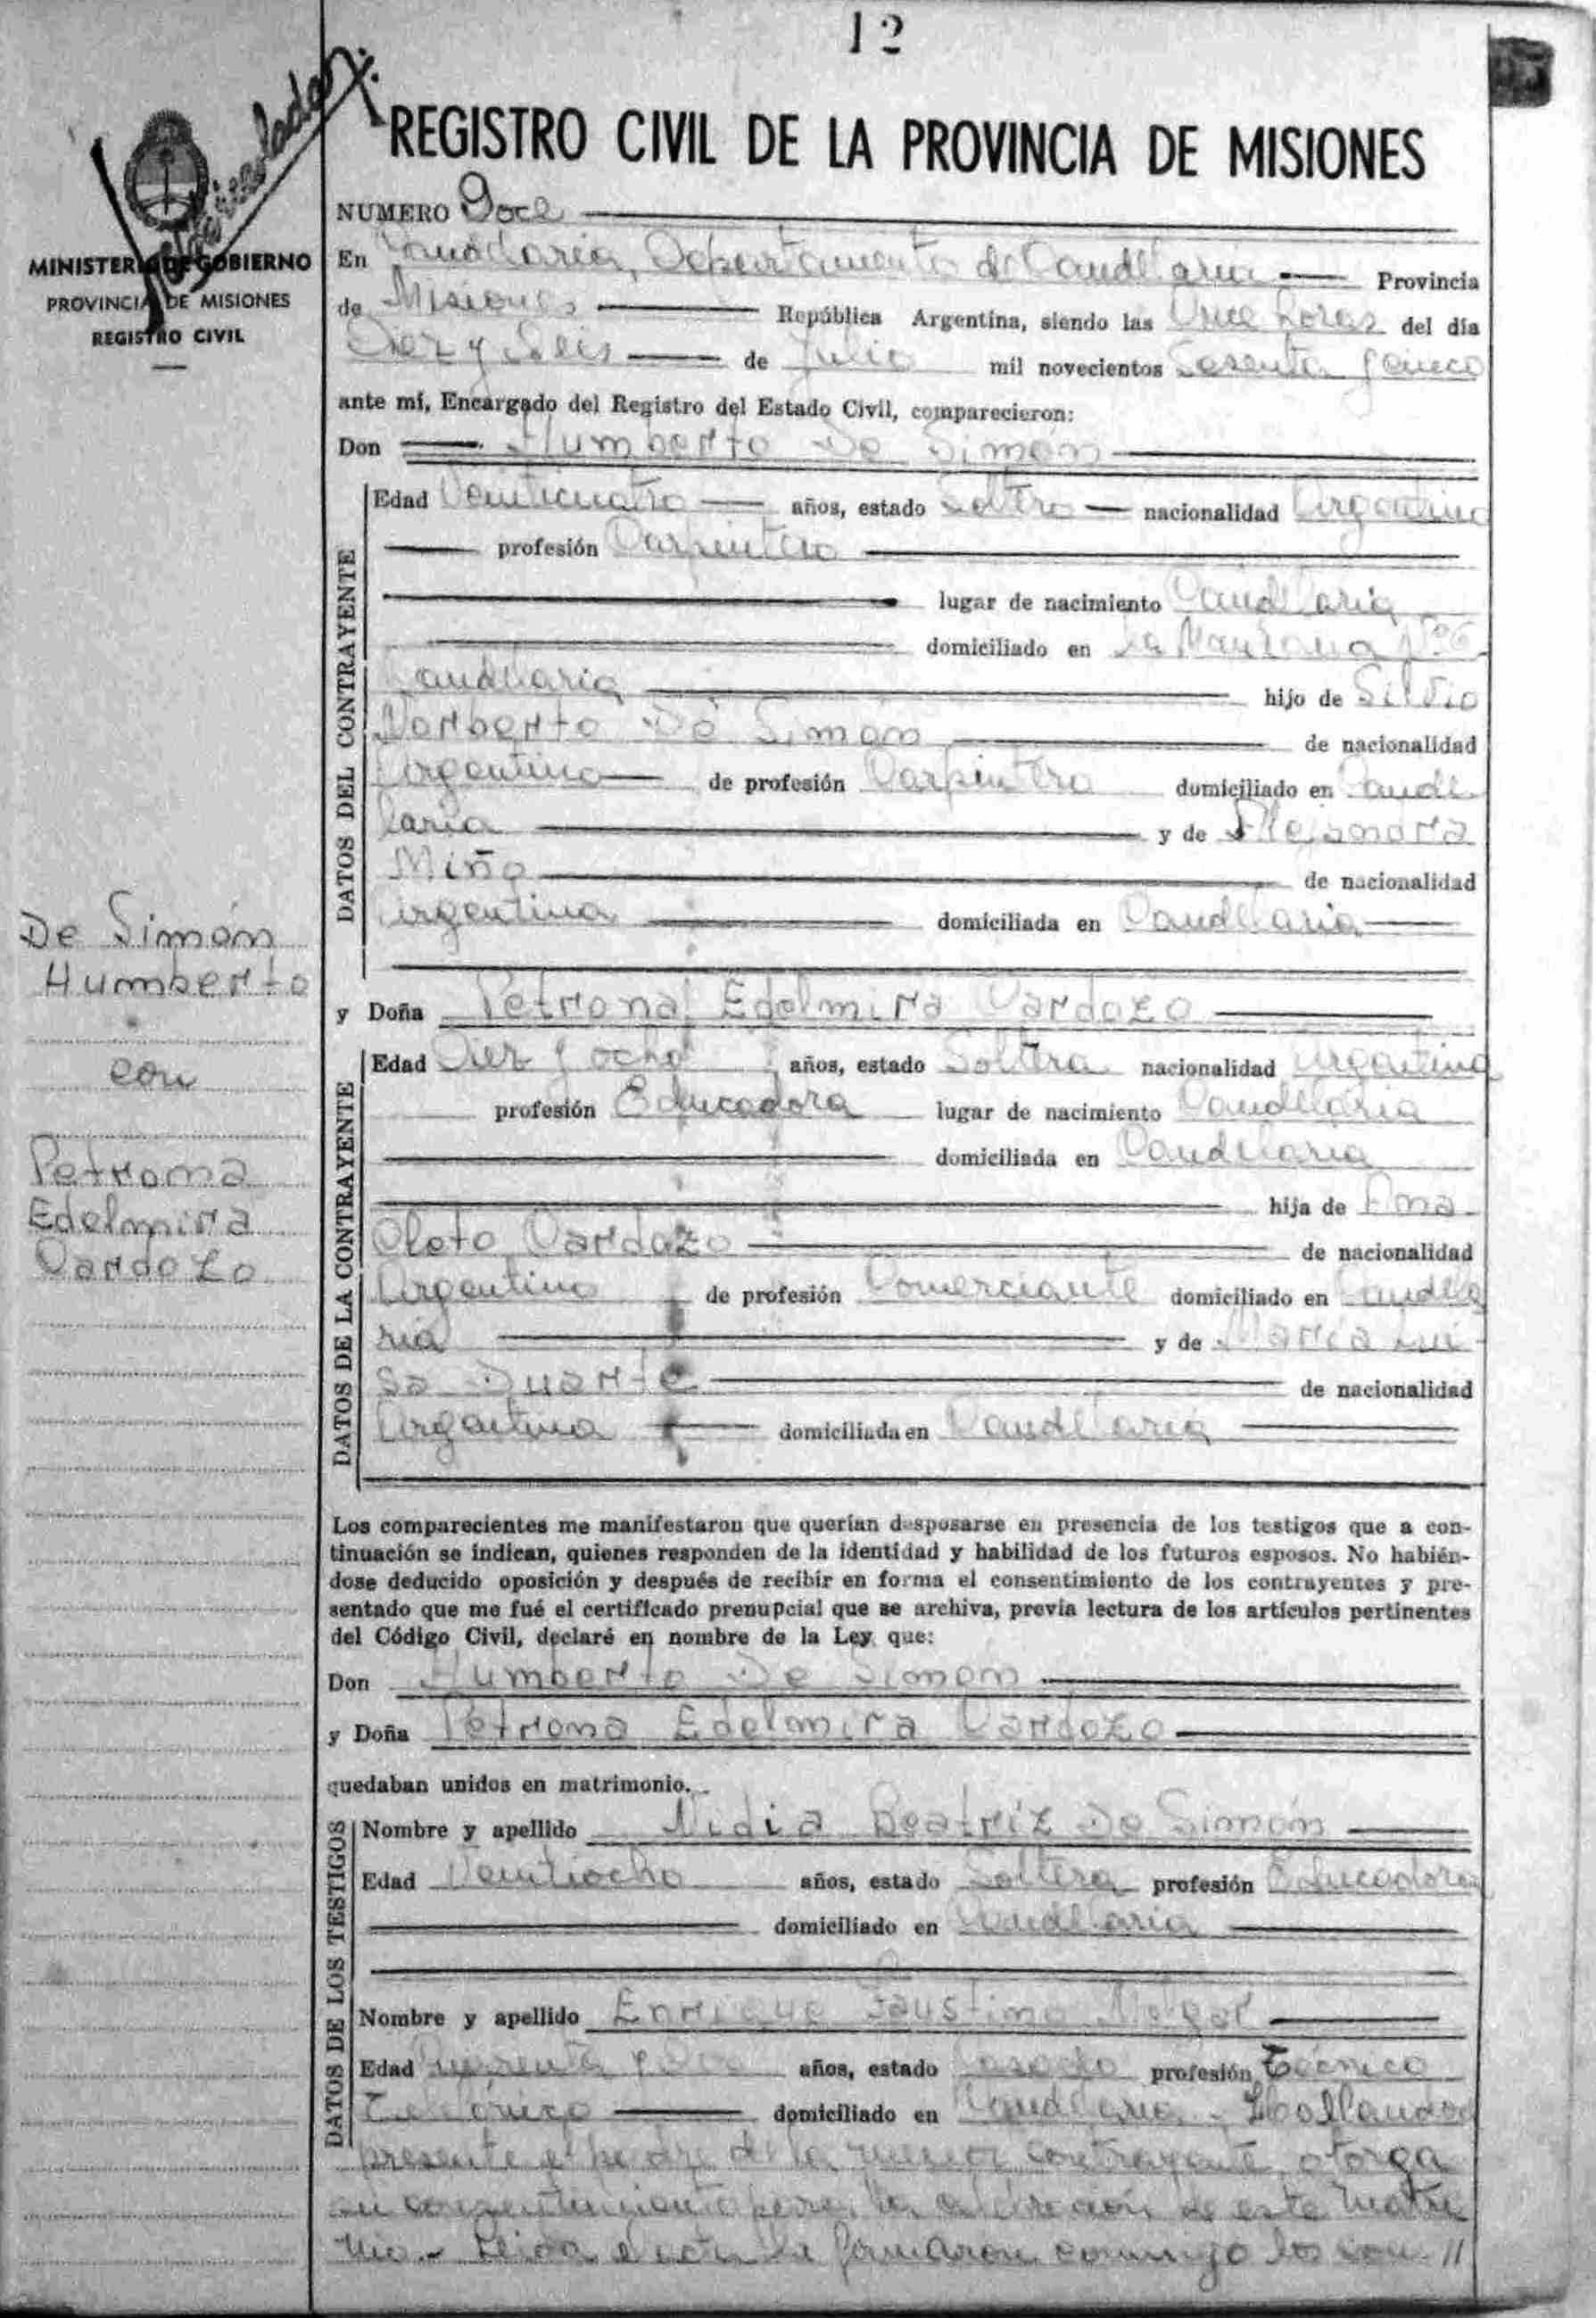 12
REGISTRO CIVIL DE LA PROVINCIA DE MISIONES
MINISTERIO DE GOBIERNO
PROVINCIA DE MISIONES
REGISTRO CIVIL
NUMERO Doce
En Candelaria, Departamento de Candelaria Provincia
de Misiones República Argentina, siendo las Once horas del día
Diez y Seis de Julio mil novecientos Sesenta y cinco
ante mí, Encargado del Registro del Estado Civil, comparecieron:
Don Humberto De Simón
DATOS DEL CONTRAYENTE
Edad Veinticuatro años, estado Soltero nacionalidad Argentino
profesión Carpintero
lugar de nacimiento Candelaria
domiciliado en La Manzana Nº 6
Candelaria hijo de Silvio
Norberto De Simón de nacionalidad
Argentino de profesión Carpintero domiciliado en Cande
laria y de Alejandra
Miño de nacionalidad
Argentina domiciliada en Candelaria
De Simón
Humberto
con
Petrona
Edelmira
Cardozo
y Doña Petrona Edelmira Cardozo
DATOS DE LA CONTRAYENTE
Edad Diez y ocho años, estado Soltera nacionalidad Argentina
profesión Educadora lugar de nacimiento Candelaria
domiciliada en Candelaria
hija de Ana
cleto Cardozo de nacionalidad
Argentino de profesión Comerciante domiciliado en Candela
ria y de María Lui-
sa Duarte de nacionalidad
Argentina domiciliada en Candelaria
Los comparecientes me manifestaron que querían desposarse en presencia de los testigos que a con-
tinuación se indican, quienes responden de la identidad y habilidad de los futuros esposos. No habién-
dose deducido oposición y después de recibir en forma el consentimiento de los contrayentes y pre-
sentado que me fué el certificado prenupcial que se archiva, previa lectura de los artículos pertinentes
del Código Civil, declaré en nombre de la Ley que:
Don Humberto De Simón
y Doña Petrona Edelmira Cardozo
quedaban unidos en matrimonio.
DATOS DE LOS TESTIGOS
Nombre y apellido Nidia Beatríz De Simón
Edad Veintiocho años, estado Soltera profesión Educadora
domiciliado en Candelaria
Nombre y apellido Enrique Faustino
Edad Cuarenta y años, estado Casado profesión Técnico
Telefónico domiciliado en Candelaria - Hallandose
presente el padre de la menor contrayente, otorga
su consentimiento para la celebración de este matri
nio.- Leida el acta la firmaron conmigo los con-//